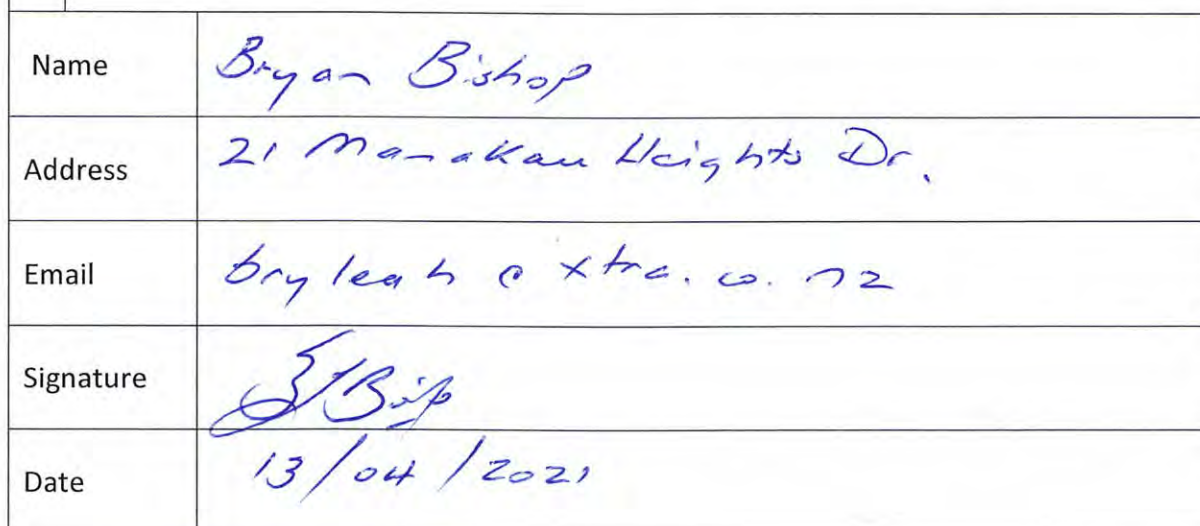 Name Bryan Bishop
Address 21 Manakau Heights Dr.
Email bryleah@xtra.co.nz
Signature
Date 13/04/2021